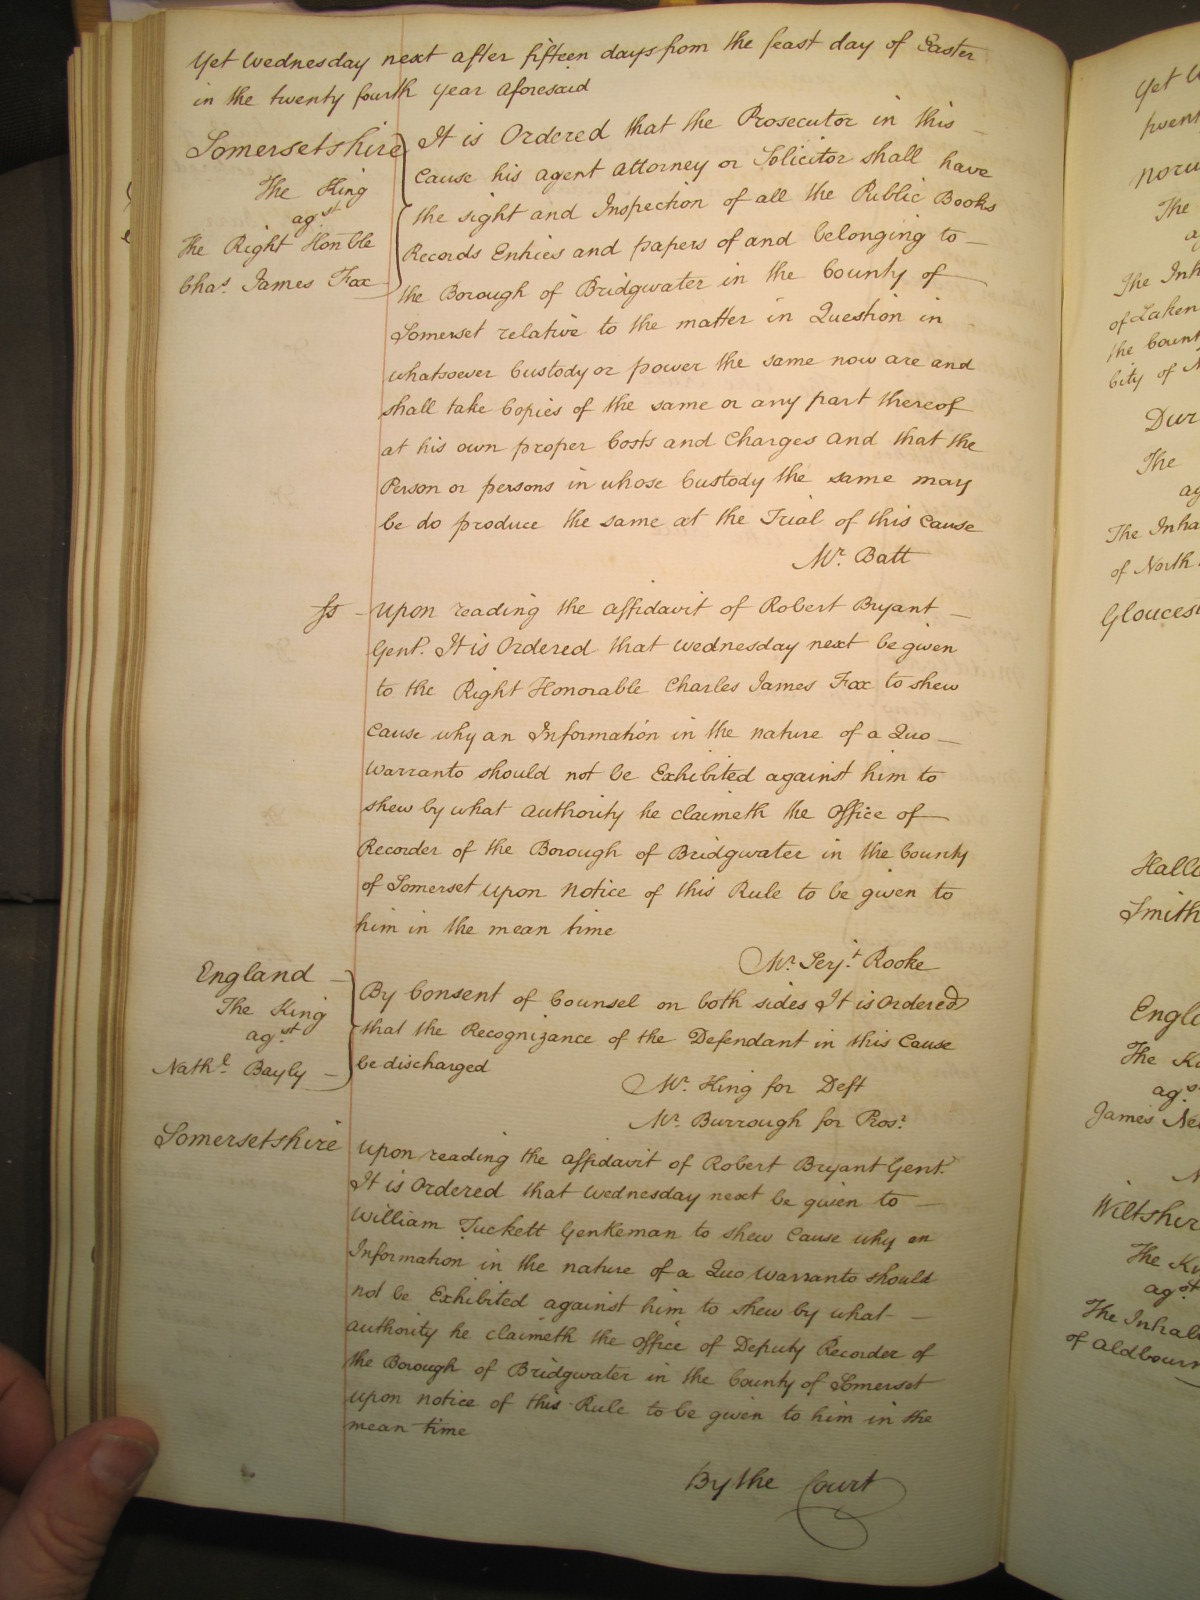 Yet Wednesday next after fifteen days from the feast day of Easter
in the twenty fourth year aforesaid
Somersetshire
The King
agst
The Right Honble
Chas. James Fox
It is Ordered that the Prosecutor in this
Cause his agent attorney or Solicitor shall have
the sight and Inspection of all the Public Books
Records Entries and papers of and belonging to
the Borough of Bridgwater in the County of
Somerset relative to the matter in Question in
whatsoever Custody or power the same now are and
shall take Copies of the same or any part thereof
at his own proper Costs and Charges and that the
Person or persons in whose Custody the same may
be do produce the same at the Trial of this Cause
Mr. Batt
Ss
Upon reading the affidavit of Robert Bryant
Gent. It is Ordered that Wednesday next be given
to the Right Honorable Charles James Fox to shew
Cause why an Information in the nature of a Quo
Warranto should not be Exhibited against him to
shew by what authority he claimeth the Office of
Recorder of the Borough of Bridgwater in the County
of Somerset upon Notice of this Rule to be given to
him in the mean time
Mr. Serjt. Rooke
England
The King
agst
Nathl. Bayly
By Consent of Counsel on both sides It is Ordered
that the Recognizance of the Defendant in this Cause
be discharged
Mr. King for Deft
Mr. Burrough for Pros:
Somersetshire
Upon reading the affidavit of Robert Bryant Gent.
It is Ordered that Wednesday next be given to
William Tuckett Gentleman to shew Cause why an
Information in the nature of a Quo Warranto should
not be Exhibited against him to shew by what
authority he claimeth the Office of Deputy Recorder of
the Borough of Bridgwater in the County of Somerset
upon notice of this Rule to be given to him in the
mean time
By the Court
Yet
The
The
of Laken
the Count
City of
Dur
The
ag
The Inha
of North
Gloucest
Smith
Engl
The
agst
James
Wiltshir
The
agst
The Inhab
of Aldbourn